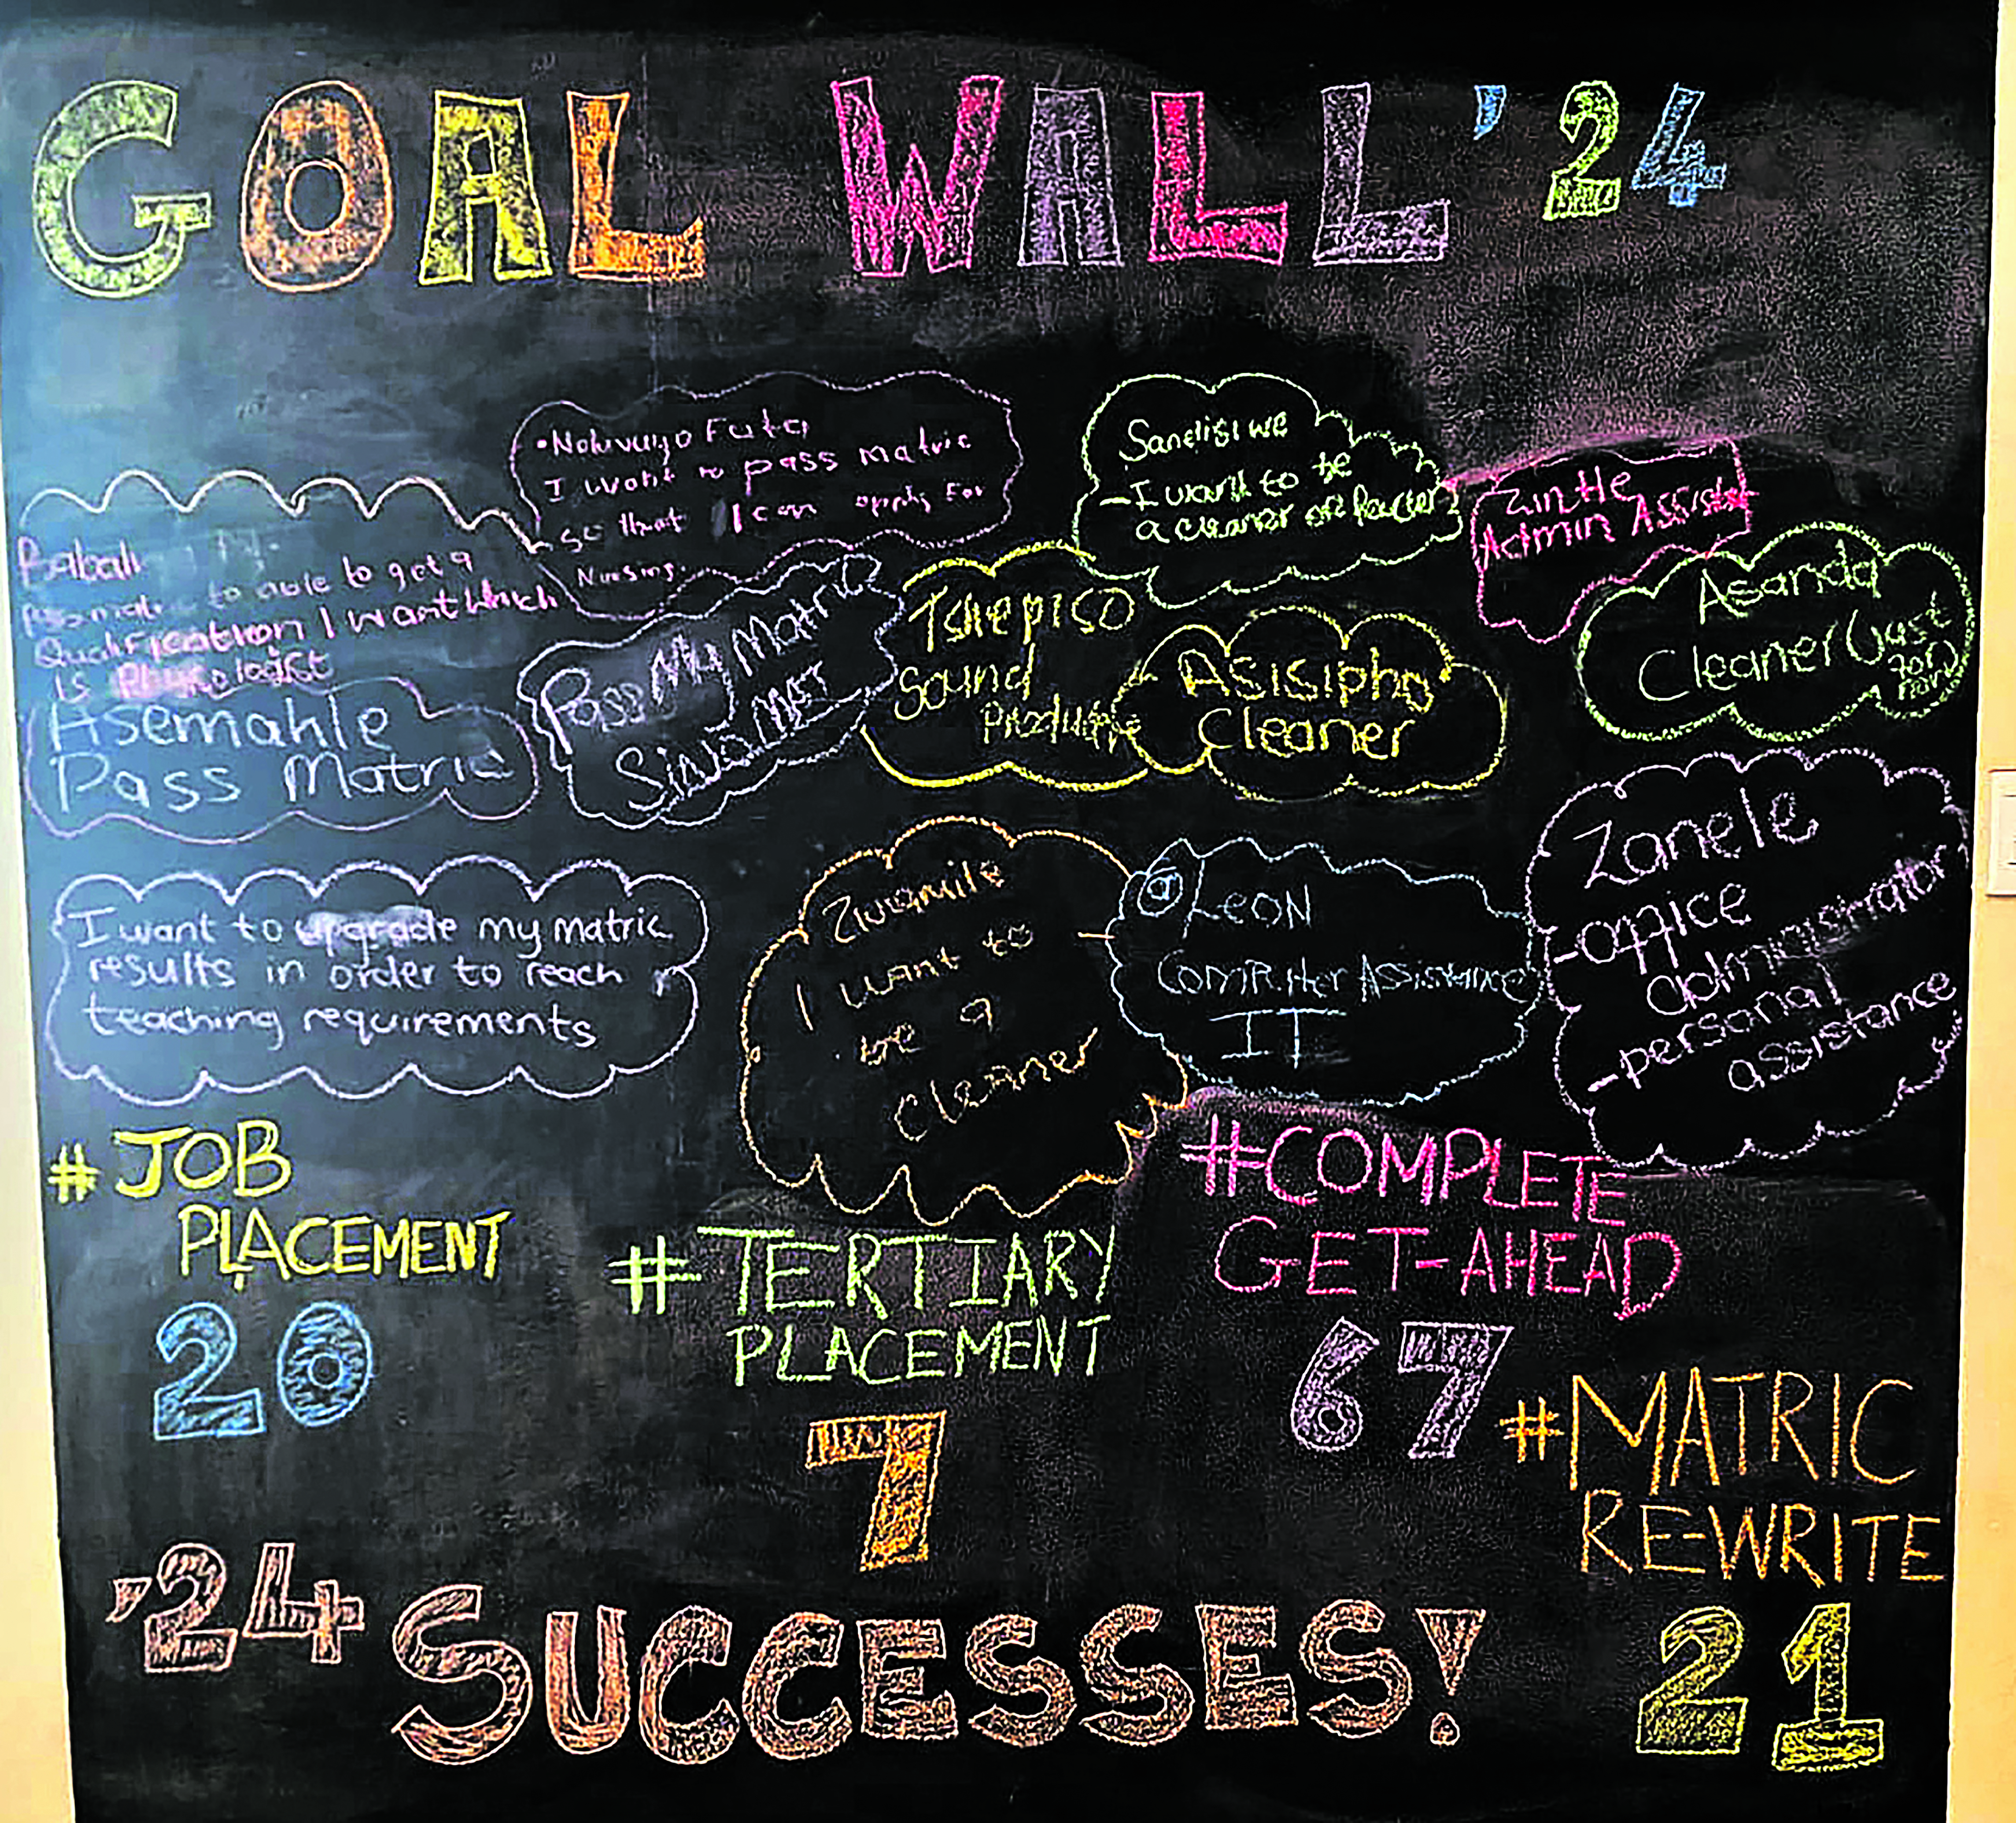 GOAL WALL '24
• Nokuvuyo Futa
I want to pass matric
so that I can apply for
Nursing.
Sandisiwe
- I want to be
a cleaner or Packer
Zintle
Admin Assist
Babali
to able to get a
Qualification I want which
is
Asemahle
Pass Matric
Pass My Matric
Tshepiso
Sound
Asisipho
Cleaner
Asanda
Cleaner (Just
for now
I want to upgrade my matric
results in order to reach
teaching requirements
I want to
be a
cleaner
@ LEON
Computer Assistance
IT
Zanele
-office
administrator
-personal
assistance
# JOB
PLACEMENT
20
# TERTIARY
PLACEMENT
7
#COMPLETE
GET-AHEAD
67
#MATRIC
REWRITE
21
'24 SUCCESSES!